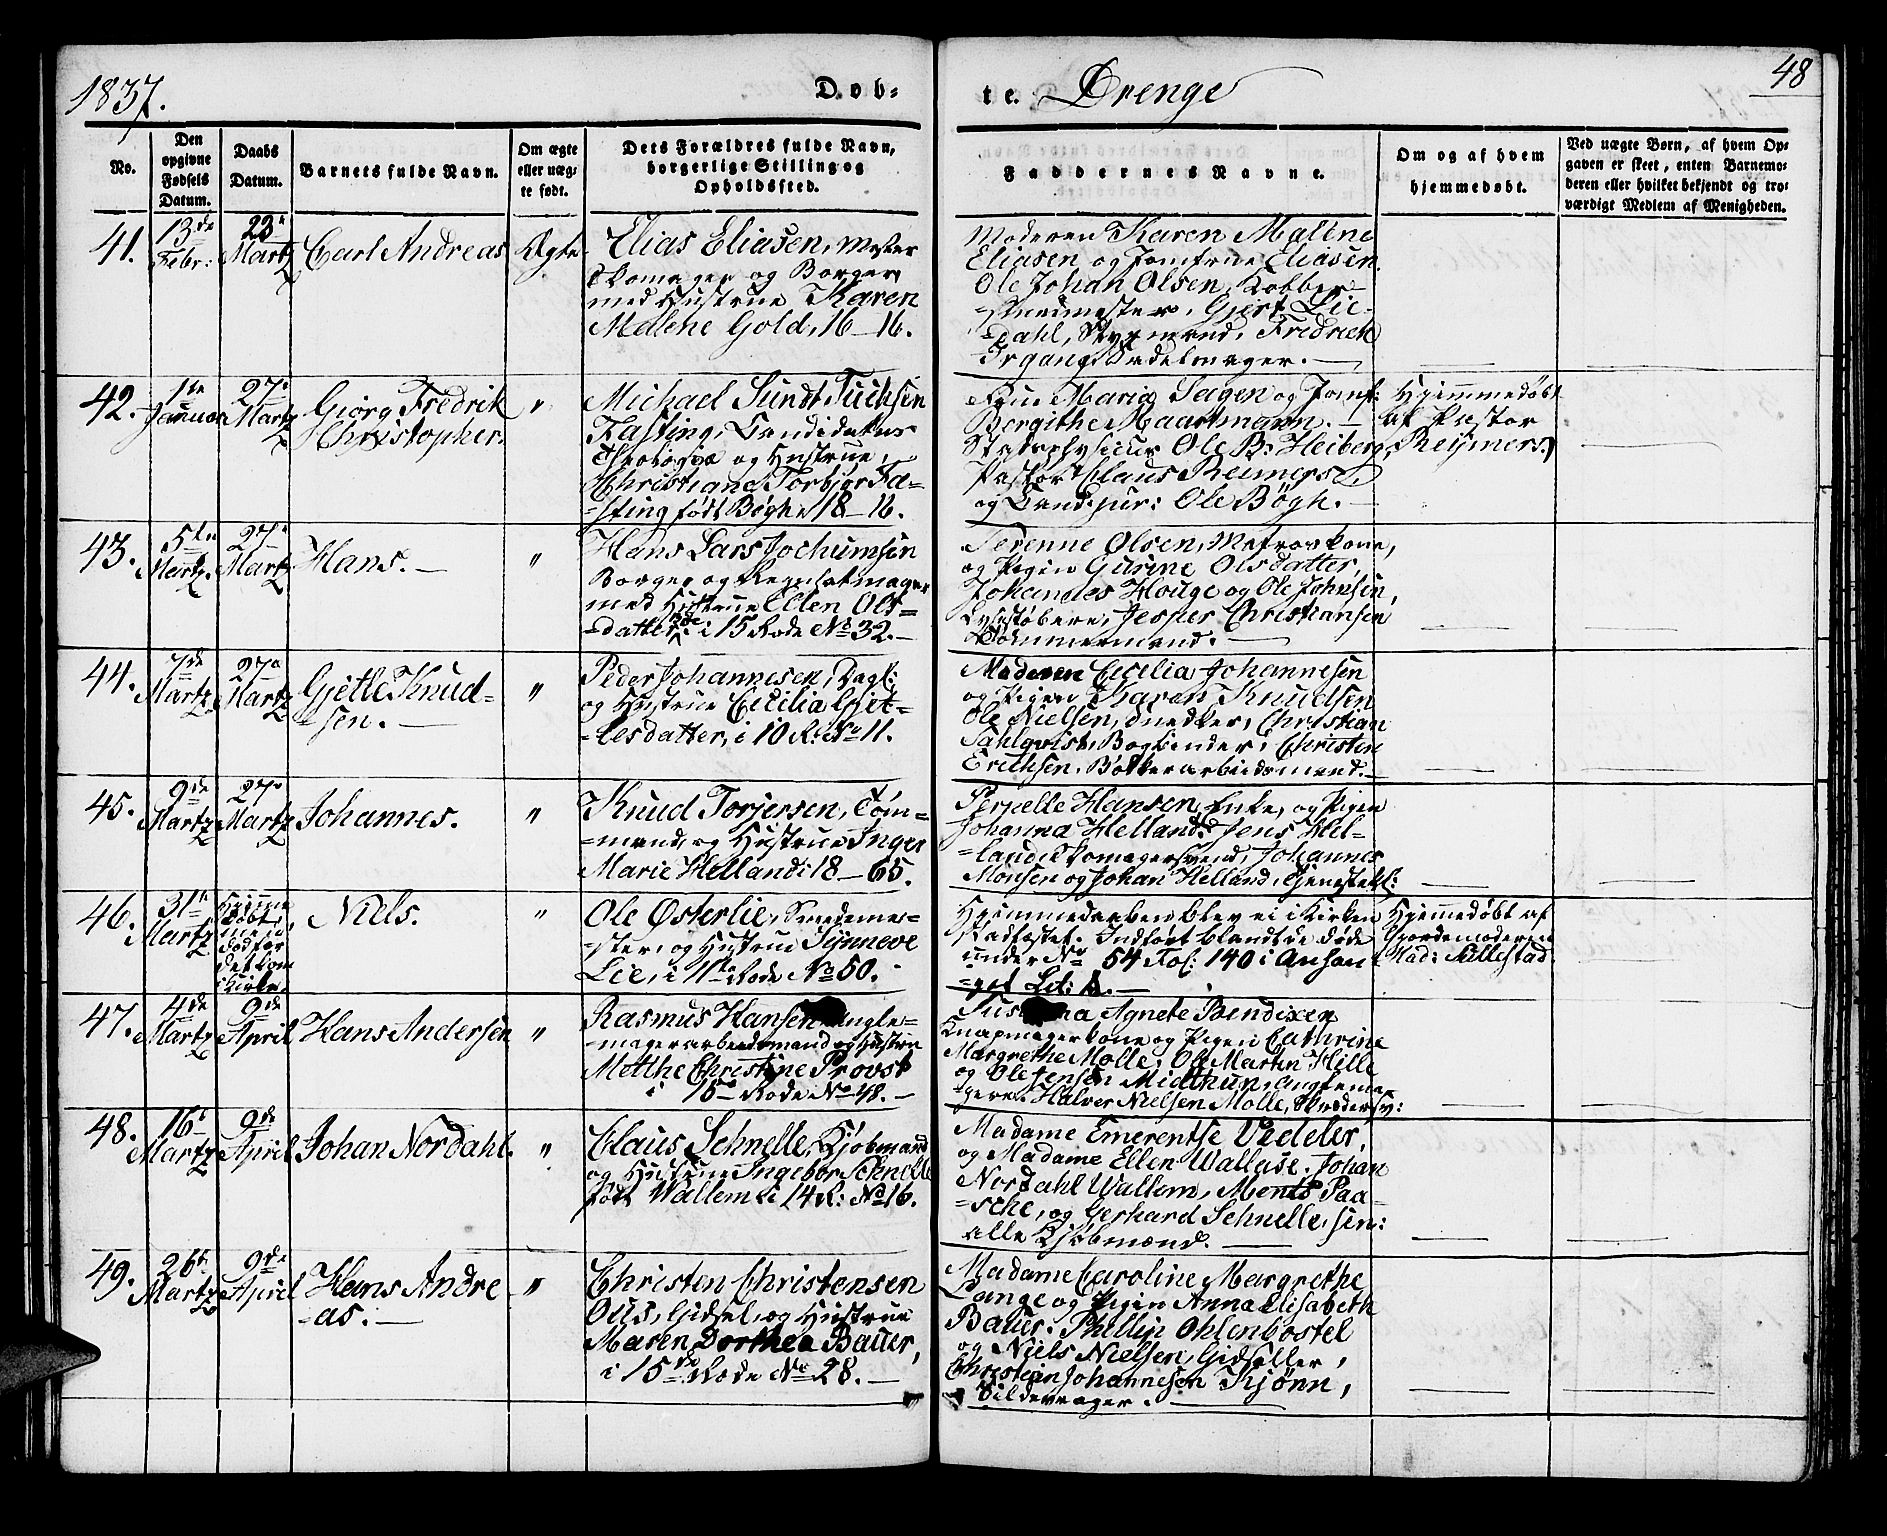 1837.
Døb-
te. Drenge
48
No.
Den opgivne Fødsels Datum.
Daabs Datum.
Barnets fulde Navn.
Om ægte eller uæg- te født.
Dets Forældres fulde Navn, borgerlige Stilling og Opholdssted.
Faddernes Navne.
Om og af hvem hjemmedøbt.
Ved uægte Børn, af hvem Op- gaven er skeet, enten Barnemo- deren eller hvilket bekjendt og tro- værdigt Medlem af Menigheden.
41.
13de Febr:
23de Martz
Carl Andreas
Ægte
Elias Eliasen, Mester
Skomager og Borger
med Hustrue Karen
Malene Gold, 16-16.
Moderen Karen Malene
Eliasen og Jomfrue Eliasen.
Ole Johan Olsen, Kobber-
-smedmester, Gjert Lie-
-dahl, Styrmand, Fredrik
Irgang, Sadelmager.
42.
1te Januar
27de Martz
Georg Fredrik
Christopher.
"
Michael Sundt Tuchsen
Fasting, Candidatus
Theologiæ og Hustrue,
Christiane Torbjor Fa-
-sting født Bøgh, 18-16.
Frue Maria Sagen og Jomf:
Bergithe Maartmann.
Stadsphysicus Ole B. Heiberg,
Pastor Claus Reimers
og Cand: jur: Ole Bøgh.
Hjemmedøbt
af Pastor
Reymers.
43.
5te Martz.
27de Martz
Hans.
"
Hans Lars Jochumsen
Borger og Repslagmager
med Hustrue Ellen Ols-
-datter, i 15de Rode No 32.
Serenne Olsen, Matroskone,
og Pigen Gurine Olsdatter,
Johannes Houge og Ole Johnsen,
Lysstøbere, Jesper Christiansen
Tømmermand.
44.
7de Martz
27de Martz
Gjetle Knud-
-sen.
"
Peder Johannesen, Dagl:
og Hustrue Cecilia Gjet-
-lesdatter, i 10 R: No 11.
Moderen Cecilia Johannesen
og Pigen Karen Knudsen
Ole Nielsen, Snedker, Christian
Sahlqvist, Bogbinder, Christen
Erichsen, Bødkerarbeidsmand.
45.
9de Martz
27de Martz
Johannes.
"
Knud Torjersen, Tøm-
-mermand, og Hustrue Inger
Marie Helland: 18-65.
Pernelle Hansen, Enke, og Pigen
Johanna Helland. Jens Hel-
-land, Skomagersvend, Johannes
Monsen og Johan Helland, Tjenestekl:
46.
31te Martz
Hjemme
døbt,
men
død før
det kom
i Kirke.
Niels.
"
Ole Østerlie, Smedeme-
-ster, og Hustrue Synneve
Lie, i 11te Rode No 50.
Hjemmedaaben blev ei i Kirken
stadfæstet. Indført blandt de døde
under No 54 Fol: 140 i
-get Lit: A.
Hjemmedøbt af
Jordemoderen
Mad: Sillestad.
47.
4de Martz
9de April
Hans Andersen
"
Rasmus Hansen, Angle-
-magerarbeidsmand og Hustrue
Metthe Christine Provst
i 15de Rode No 48.
Agnete Bendixen
Knapmagerkone og Pigen Cathrine
Margrethe Molle, Ole Martin Hille
og Ole Jensen Midthun, Anglema-
-gere, Halver Nielsen Molle, Skræddersv:
48.
16de Martz
9de April
Johan Nordahl.
"
Claus Schnelle, Kjøbmand
og Hustrue Ingebor Schnelle
født Wallem i 14 R: No 16.
Madame Emerentse Vedeler,
og Madame Ellen Wallase. Johan
Nordahl Wallem, Ments Paa-
-sche, og Gerhard Schnelle, sen:
alle Kjøbmænd.
49.
26de Martz
9de April
Hans Andre
-as.
"
Christen Christensen
Gidsel, og Hustrue
Maren Dorthea Bauer,
i 15de Rode No 28.
Madame Caroline Margrethe
Lange og Pigen Anna Elisabeth
Bauer. Phillip Ohlenbostel
og Niels Nielsen, Gidseller,
Christein Johannesen Kjønn,
Sildevrager.